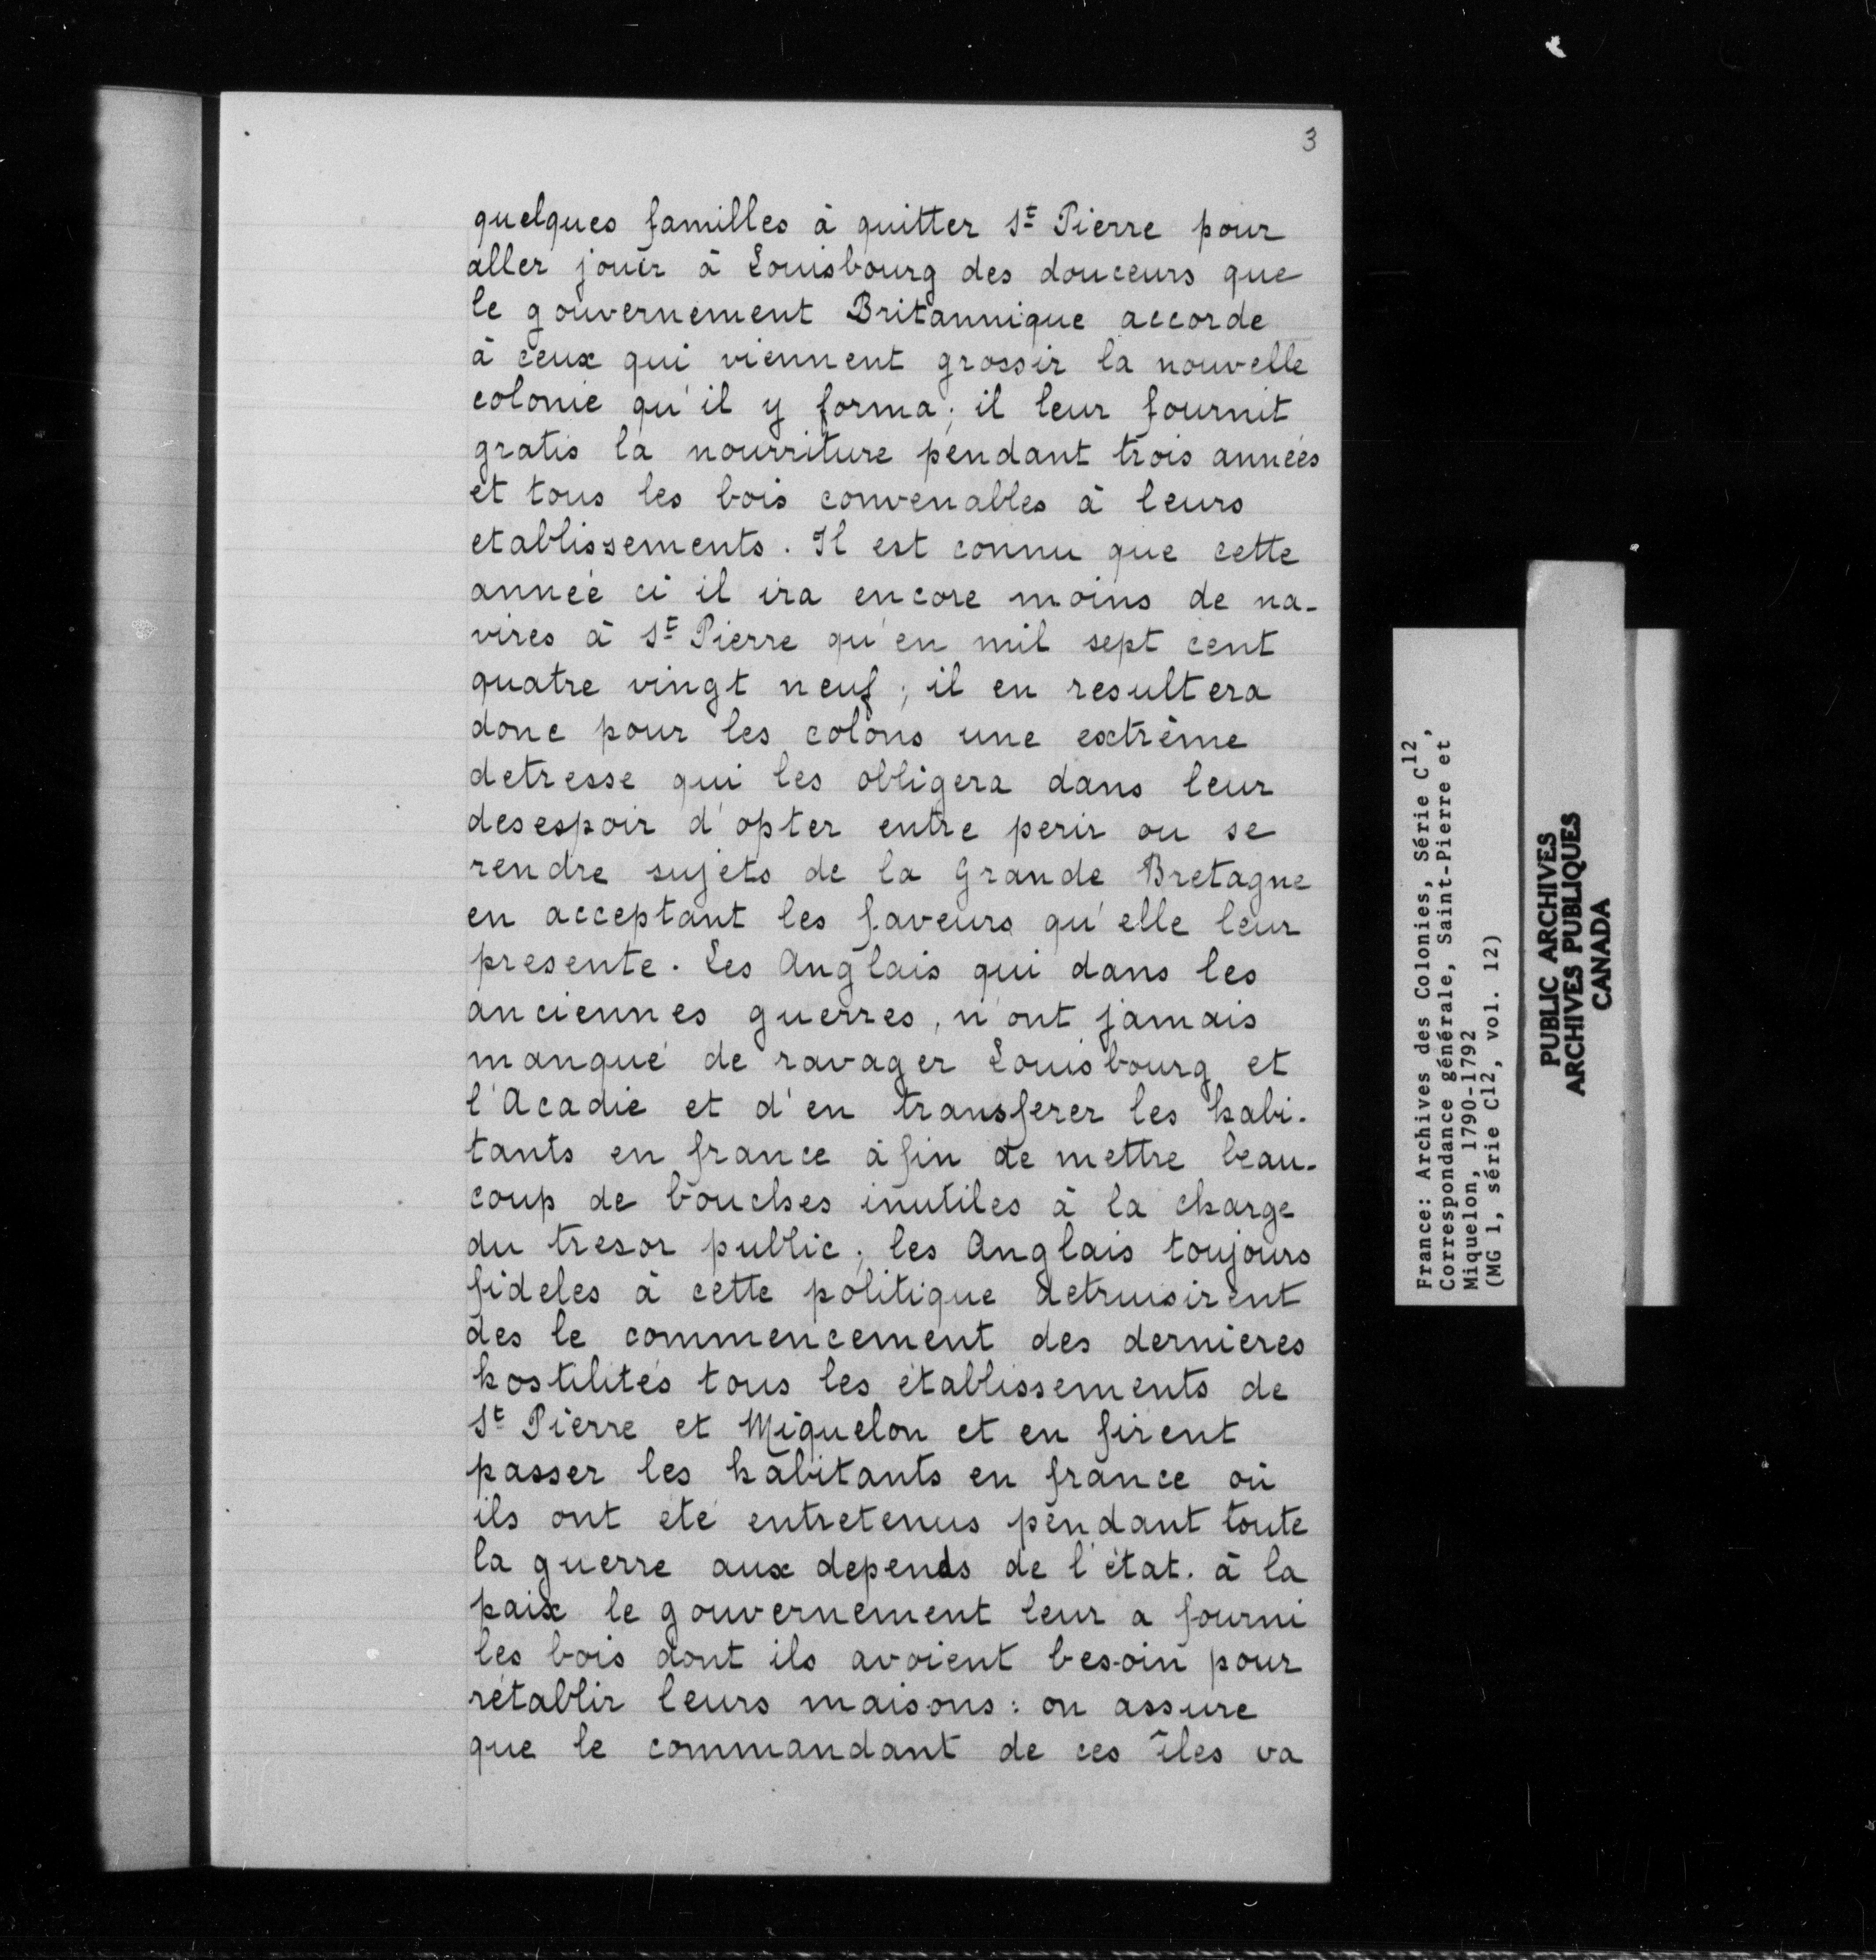 3
quelques familles à quitter St Pierre pour
aller jouir à Louisbourg des douceurs que
le gouvernement Britannique accorde
à ceux qui viennent grossir la nouvelle
colonie qu'il y forma; il leur fournit
gratis la nourriture pendant trois années
et tous les bois convenables à leurs
etablissements. Il est connu que cette
année ci il ira encore moins de na-
vires à St Pierre qu'en mil sept cent
quatre vingt neuf; il en resultera
donc pour les colons une extrême
detresse qui les obligera dans leur
desespoir d'opter entre perir ou se
rendre sujets de la Grande Bretagne
en acceptant les faveurs qu'elle leur
presente. Les Anglais qui dans les
anciennes guerres, n'ont jamais
manqué de ravager Louisbourg et
l'Acadie et d'en transferer les habi-
tants en france àfin de mettre beau-
coup de bouches inutiles à la charge
du tresor public; les Anglais toujours
fideles à cette politique detruisirent
des le commencement des dernieres
hostilités tous les établissements de
St Pierre et Miquelon et en firent
passer les habitants en france où
ils ont eté entretenus pendant toute
la guerre aux depends de l'état. à la
paix le gouvernement leur a fourni
les bois dont ils avoient besoin pour
rétablir leurs maisons: on assure
que le commandant de ces îles va
France: Archives des Colonies, Série C12,
Correspondance générale, Saint-Pierre et
Miquelon, 1790-1792
(MG 1, série C12, vol. 12)
PUBLIC ARCHIVES
ARCHIVES PUBLIQUES
CANADA